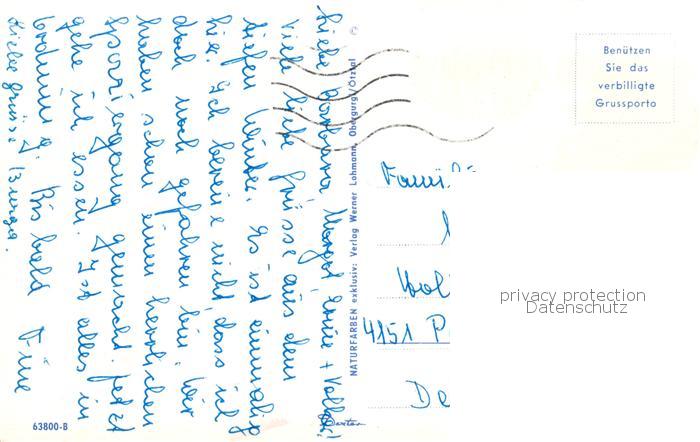 Liebe Barbara, Margot, + Volker!
Viele liebe Grüsse aus dem
tiefen Winter. Es ist einmalig
hier. Ich bereue nicht dass ich
doch noch gefahren bin. Wir
haben schon einen herrlichen
Spaziergang gemacht. Jetzt
gehe ich essen. Ist alles in
Ordnung. Bis bald
Liebe Grüsse Eure
NATURFARBEN exklusiv: Verlag Werner Lohmann, Obergurgl/Ötztal ©
Benützen
Sie das
verbilligte
Grussporto
Famil
4151
De
63800-B
privacy protection
Datenschutz